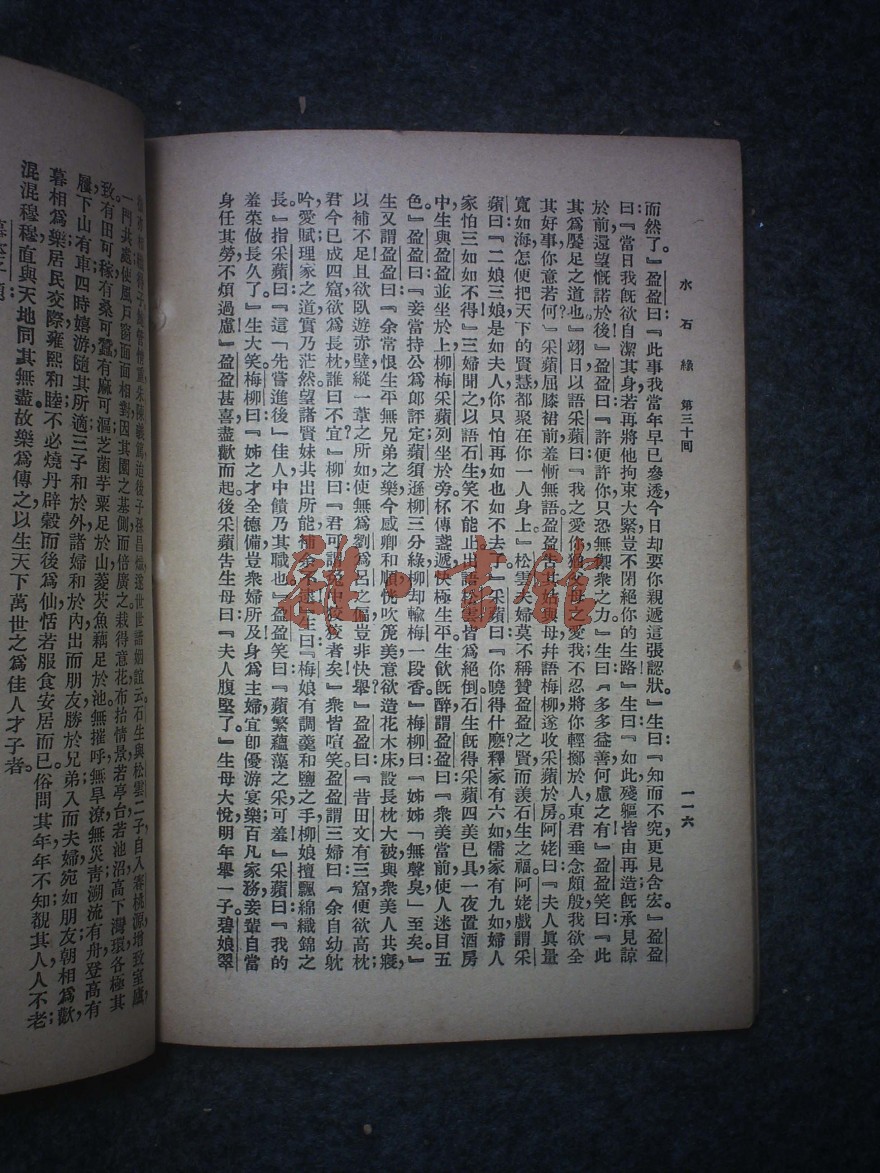 水石緣 第三十回 一一六
而然了。』盈盈曰:『此事我當年早已參透,今日却要你親遞這張認狀。』生曰:『知而不究,更見含宏。』盈盈
曰:『當日我旣欲自潔其身,若再將他拘束大緊,豈不閉絕你的生路!』生曰:『如此殘軀,皆由再造,旣承見諒
於前,還望慨諾於後。』盈盈曰:『許便許你,只恐無禦衆之力。』生曰:『多多益善,何慮之有!』盈盈笑曰:『此
其爲饜足之道也。』翊日以語采蘋曰:『我之愛你,猶父母之愛我;不忍將你輕擲於人。東君垂念頗殷,我欲全
其好事,你意若何?』采蘋屈膝裙前,羞慚無語。盈盈告其姑與母,幷語梅柳,遂收采蘋於房。阿姥曰:『夫人眞量
寬如海,怎便把天下的賢慧都聚在你一人身上?』松雲夫婦莫不稱贊盈盈之賢,而羨石生之福。阿姥戲謂采
蘋曰:『二娘三娘是如夫人,你只怕再如也如不去了!』采蘋曰:『你曉得什麽?釋家有六如,儒家有九如,婦人
家怕三如如不得!』三婦聞之,以語石生,笑不能止;出語松雲,皆爲絕倒。石生旣得采蘋,四美已具,一夜置酒房
中,生與盈盈並坐於上,柳梅采蘋列坐於旁。杯傳盞遞,快極生平。生飲旣醉,謂盈盈曰:『衆美當前,使人迷目五
色。』盈盈曰:『妾當持公爲郎評定:蘋須遜柳三分綠,柳却輸梅一段香。』梅柳曰:『姊姊「無聲臭」至矣。』
生又謂盈盈曰:『余常恨生平無兄弟之樂,今感卿和順,恍吹篪美意,欲造花木床,設長枕大被,與衆美人共寢,
以補不足;且欲臥遊赤壁,縱一葦之所如,使無爲劉爲呂之偏,豈非快舉!』盈盈曰:『昔田文有三窟,便欲高枕;
君今已成四窟,欲爲長枕,誰曰不宜?』柳曰:『君可謂兔中狡狡者矣!』衆皆喧笑。盈盈謂三婦曰:『余自幼躭
吟愛賦,理家之道,實乃茫然,望諸賢妹共出所能,補余不逮。』生曰:『梅娘有調羹和鹽之手,柳娘擅飄綿織錦之
長。』指采蘋曰:『這「先嘗進後」佳人,中饋乃其職也。』盈盈笑曰:『蘋繁蘊藻之采可羞!』采蘋曰:『我的
羞菜做長久了!』生大笑。梅柳曰:『姊之才全德備,豈衆婦所及!身爲主婦,宜卽優游宴樂,百凡家務,妾輩自當
身任其勞,不煩過慮!』盈盈甚喜,盡歡而起。後采蘋告生母曰:『夫人腹堅了。』生母大悅,明年舉一子。碧娘翠
朱陳義篤,迨後子孫昌熾,遂世世諧姻誼云。石生與松雲二子,自入寨桃源,增致室廬,
一門共處,使風戶窗面面相對,因其園之基側而倍廣之,栽得意花,布抬情景,若亭台,若池沼,高下灣環,各極其
致。有田可稼,有桑可蠶,有麻可漚,芝菌芋粟足於山,菱芡魚藕足於池。無摧呼,無旱潦,無災眚。溯流有舟,登高有
屨,下山有車,四時嬉游,隨其所適。三子和於外,諸婦和於內,出而朋友勝於兄弟,入而夫婦宛如朋友,朝相爲歡,
暮相爲樂,居民交際,雍熙和睦,不必燒丹辟穀而後爲仙,恬若服食安居而已。俗問其年,年不知;覩其人,人不老;
混混穆穆,直與天地同其無盡。故樂爲傳之,以生天下萬世之爲佳人才子者。
雜·書館